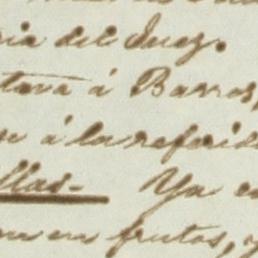 ria del Juez.
tava á Barros,
se á la referid
llas- Ya e
en frutos, y